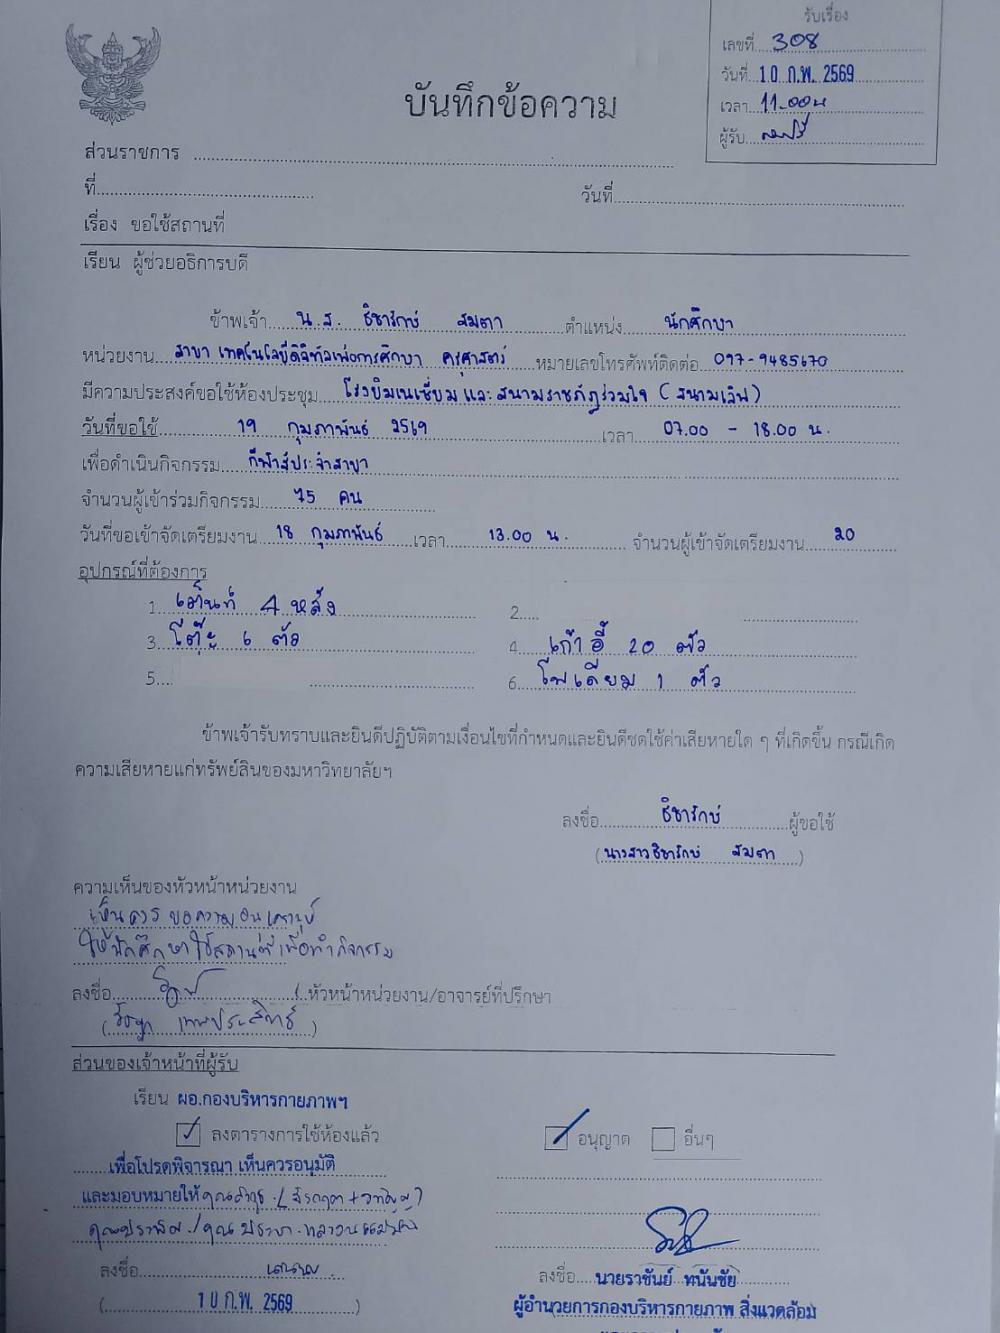 รับเรื่อง
เลขที่ 308
วันที่ 10 ก.พ. 2569
เวลา 11.00 น
ผู้รับ
บันทึกข้อความ
ส่วนราชการ
ที่ วันที่
เรื่อง ขอใช้สถานที่
เรียน ผู้ช่วยอธิการบดี
ข้าพเจ้า น.ส. ธิชารักษ์ สมตา ตำแหน่ง นักศึกษา
หน่วยงาน สาขา เทคโนโลยีดิจิทัลเพื่อการศึกษา ครุศาสตร์ หมายเลขโทรศัพท์ติดต่อ 097-9485670
มีความประสงค์ขอใช้ห้องประชุม โรงยิมเนเซี่ยม และ สนามราชภัฏร่วมใจ (สนามเลิฟ)
วันที่ขอใช้ 19 กุมภาพันธ์ 2569 เวลา 07.00 - 18.00 น.
เพื่อดำเนินกิจกรรม กีฬาสีประจำสาขา
จำนวนผู้เข้าร่วมกิจกรรม 75 คน
วันที่ขอเข้าจัดเตรียมงาน 18 กุมภาพันธ์ เวลา 13.00 น. จำนวนผู้เข้าจัดเตรียมงาน 20
อุปกรณ์ที่ต้องการ
1. เต็นท์ 4 หลัง 2.
3. โต๊ะ 6 ตัว 4. เก้าอี้ 20 ตัว
5. 6. โพเดียม 1 ตัว
ข้าพเจ้ารับทราบและยินดีปฏิบัติตามเงื่อนไขที่กำหนดและยินดีชดใช้ค่าเสียหายใด ๆ ที่เกิดขึ้น กรณีเกิด
ความเสียหายแก่ทรัพย์สินของมหาวิทยาลัยฯ
ลงชื่อ ธิชารักษ์ ผู้ขอใช้
(นางสาวธิชารักษ์ สมตา)
ความเห็นของหัวหน้าหน่วยงาน
เห็นควร ขอความอนุเคราะห์
ให้นักศึกษาใช้สถานที่เพื่อทำกิจกรรม
ลงชื่อ หัวหน้าหน่วยงาน/อาจารย์ที่ปรึกษา
( เทพประสิทธิ์ )
ส่วนของเจ้าหน้าที่ผู้รับ
เรียน ผอ.กองบริหารกายภาพฯ
ลงตารางการใช้ห้องแล้ว อนุญาต อื่นๆ
เพื่อโปรดพิจารณา เห็นควรอนุมัติ
และมอบหมายให้
ลงชื่อ
(10 ก.พ. 2569)
ลงชื่อ นายราชันย์ ทนันชัย
ผู้อำนวยการกองบริหารกายภาพ สิ่งแวดล้อม